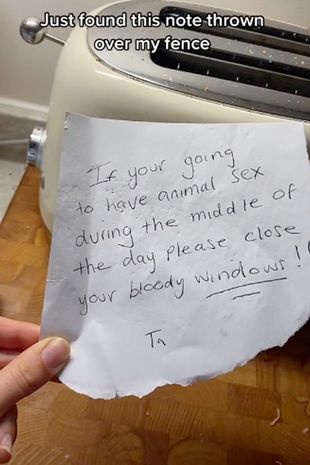 Just found this note thrown
over my fence
If your going
to have animal sex
during the middle of
the day please close
your bloody windows!!
Ta